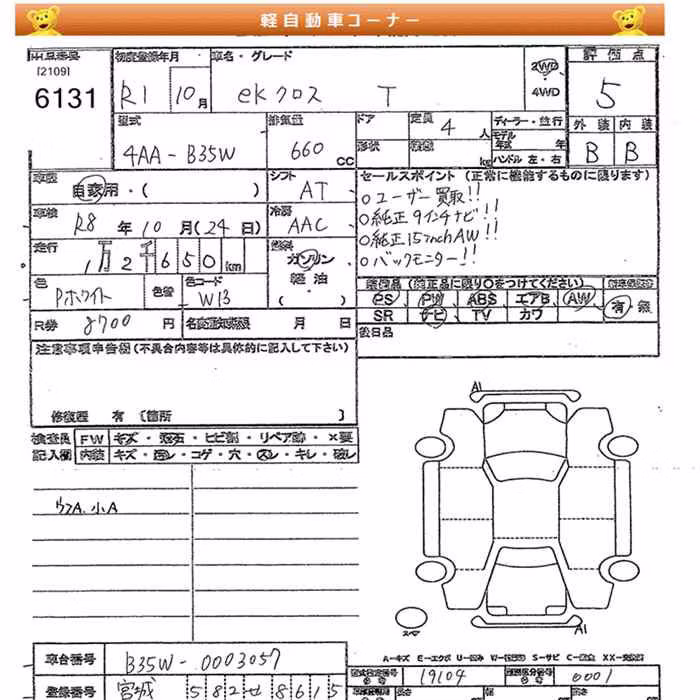 軽自動車コーナー
出品番号 初度登録年月 車名・グレード 2WD 評価点
[2109]
6131 R1 10月 ekクロス T 4WD 5
型式 排気量 ドア 定員 4人 ディーラー・並行 外装 内装
4AA-B35W 660cc 形状 積載 kg モデル年式 年 ハンドル 左・右 B B
車歴 自家用・( ) シフト AT セールスポイント(正常に機能するものに限ります)
車検 R8年10月(24日) 冷房 AAC
○ユーザー買取!!
○純正9インチナビ!!
○純正15inchAW!!
○バックモニター!!
走行 1万2千650km 燃料 ガソリン 軽油 ( )
色 Pホワイト 色替 色コード W13
装備品(純正品に限り○をつけてください)
PS PW ABS エアB AW 有 無
SR ナビ TV カワ
R券 8700円 名変通知期限 月 日 後日品
注意事項申告欄(不具合内容等は具体的に記入して下さい)
修復歴 有 〔箇所 〕
検査員 FW キズ・飛石・ヒビ割・リペア跡・×要
記入欄 内装 キズ・汚レ・コゲ・穴・スレ・キレ・破レ
A1
小A
A1
スペア
A-キズ E-エクボ U-凹み W-波 S-サビ C-腐食 XX-交換済
車台番号 B35W-0003057
型式指定番号 19104 類別区分番号 0001
登録番号 宮城 582 せ 8615